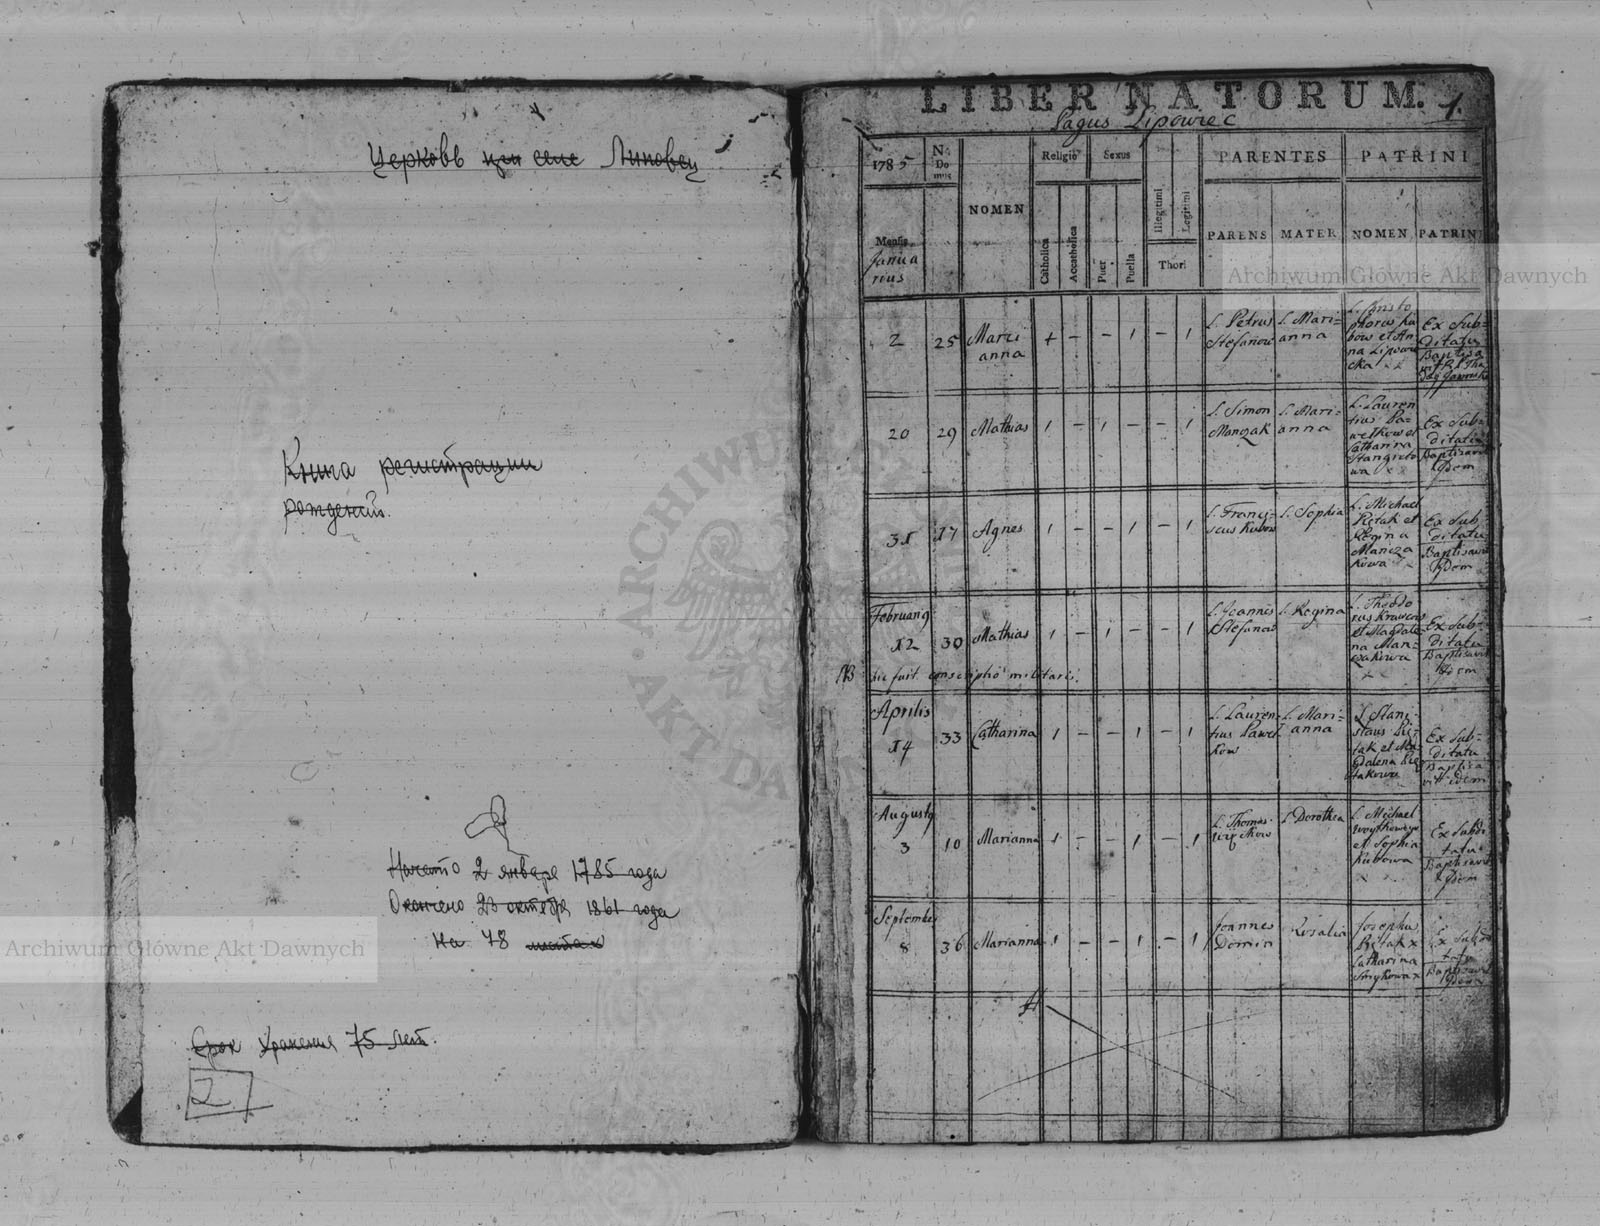 Церковь при селе Липовец
Книга регистрации
рождений.
Начато 2 января 1785 года
Окончено 23 октября 1861 года
На 78 листах
Срок хранения 75 лет.
2
LIBER NATORUM. 1.
Pagus Lipowiec
1785
N. Do mus
NOMEN
Religio
Sexus
PARENTES
PATRINI
Mensis
Janua
rius
Catholica
Accatholica
Puer
Puella
Illegitimi
Legitimi
Thori
PARENS
MATER
NOMEN
PATRINI
2 25 Mari
anna
+ - - 1 - 1
L. Petrus
Stefanow
L. Mari=
anna
L. Christo
phorus Ku
bow et An
na Lipow
cka
Ex Sub=
ditatu
20 29 Mathias 1 - 1 - - 1
L. Simon
Manczak
L. Mari=
anna
L. Lauren
tius Pa=
welkow et
Catharina
Ex Sub=
ditatu
Baptisavit
Idem
31 17 Agnes 1 - - 1 - 1
L. Franci=
scus Kubow
L. Sophia
L. Michael
Pietak et
Regina
Mancza
kowa
Ex Sub
ditatu
Baptisavit
Idem
Februarij
12 30 Mathias 1 - 1 - - 1
L. Joannes
Stefanow
L. Regina
L. Theodo
rus
et Magdale
na Man=
czakowa
Ex Sub=
ditatu
Baptisavit
Idem
NB hic fuit conscriptio militaris.
Aprilis
14 33 Catharina 1 - - 1 - 1
L. Lauren=
tius Pawel
kow
L. Mari=
anna
L. Stani
slaus Pie=
tak et Ma
gdalena Pie
takowa
Ex Sub=
ditatu
Baptisa
vit idem
Augusty
3 10 Marianna 1 - - 1 - 1
L. Thomas
L. Dorothea
L. Michael
et Sophia
Kubowa
Ex Subdi
tatu
Baptisavit
Idem
September
8 36 Marianna 1 - - 1 - 1
Joannes
Domin
Rosalia
Josephus
Pietak x
Catharina
Smykowa x
Ex Subdi
tatu
Baptisavit
Idem
Archiwum Główne Akt Dawnych
Archiwum Główne Akt Dawnych